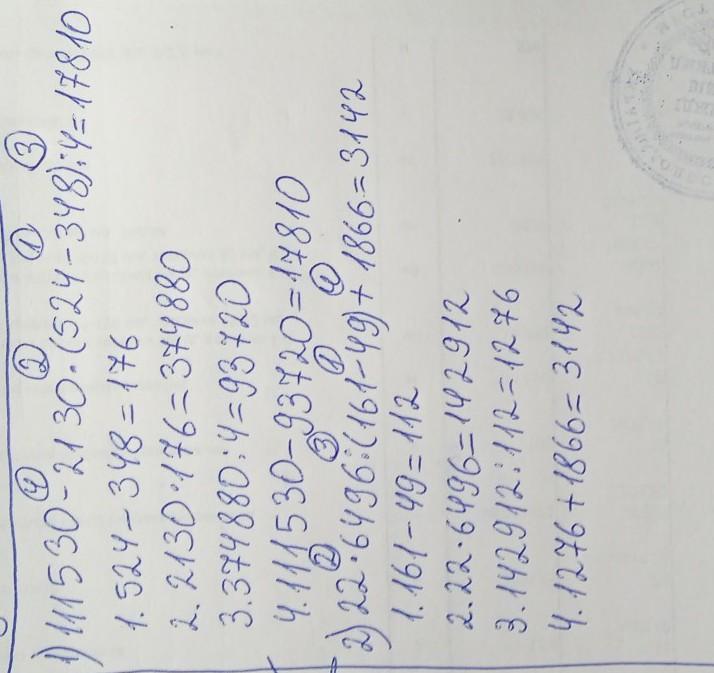 ④ ② ① ③
1) 111530-2130·(524-348):4=17810
1.524-348=176
2.2130·176=374880
3.374880:4=93720
4.111530-93720=17810
② ③ ① ④
2) 22·6496:(161-49)+1866=3142
1.161-49=112
2.22·6496=142912
3.142912:112=1276
4.1276+1866=3142